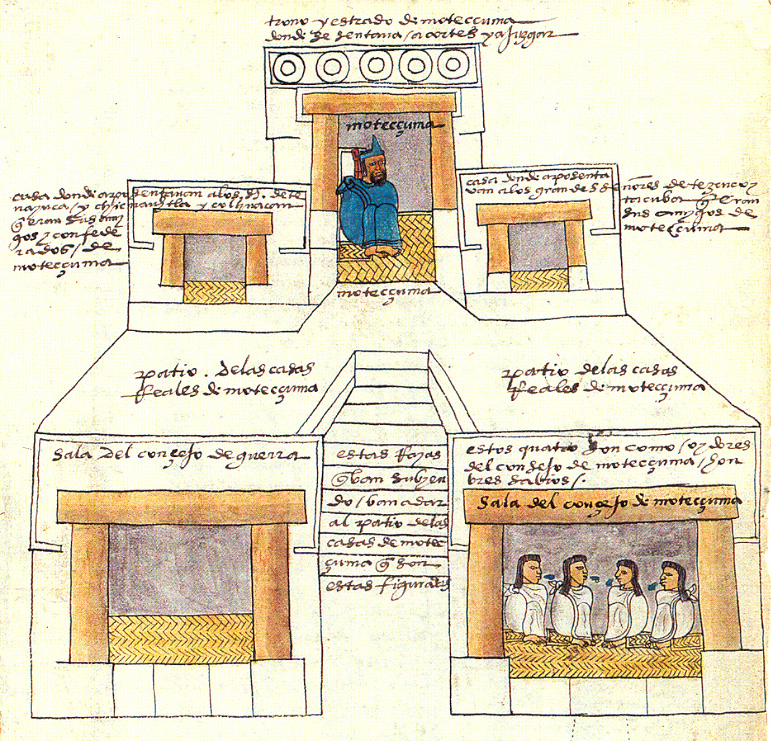 trono y estrado de moteccuma
donde se sentava / a cortes y a juzgar
moteccuma
moteccuma
casa donde aposentavan a los s^s. de te
nayuca / y chiconauhtla y colhuacan
q̃ eran sus ami
gos y confede
rados / de
moteccuma
casa donde aposenta
van a los grandes señores de tezcuco y
tacuba q̃ eran
sus amigos de
moteccuma
patio . de las casas
Reales de moteccuma
patio de las casas
Reales de moteccuma
Sala del consejo de guerra
estas Rayas
q̃ van subyen
do / van a dar
al patio de las
casas de motec
cuma q̃ son
estas figuradas
estos quatro son como / oydores
del consejo de moteccuma / hon
bres sabios /.
Sala del consejo de moteccuma